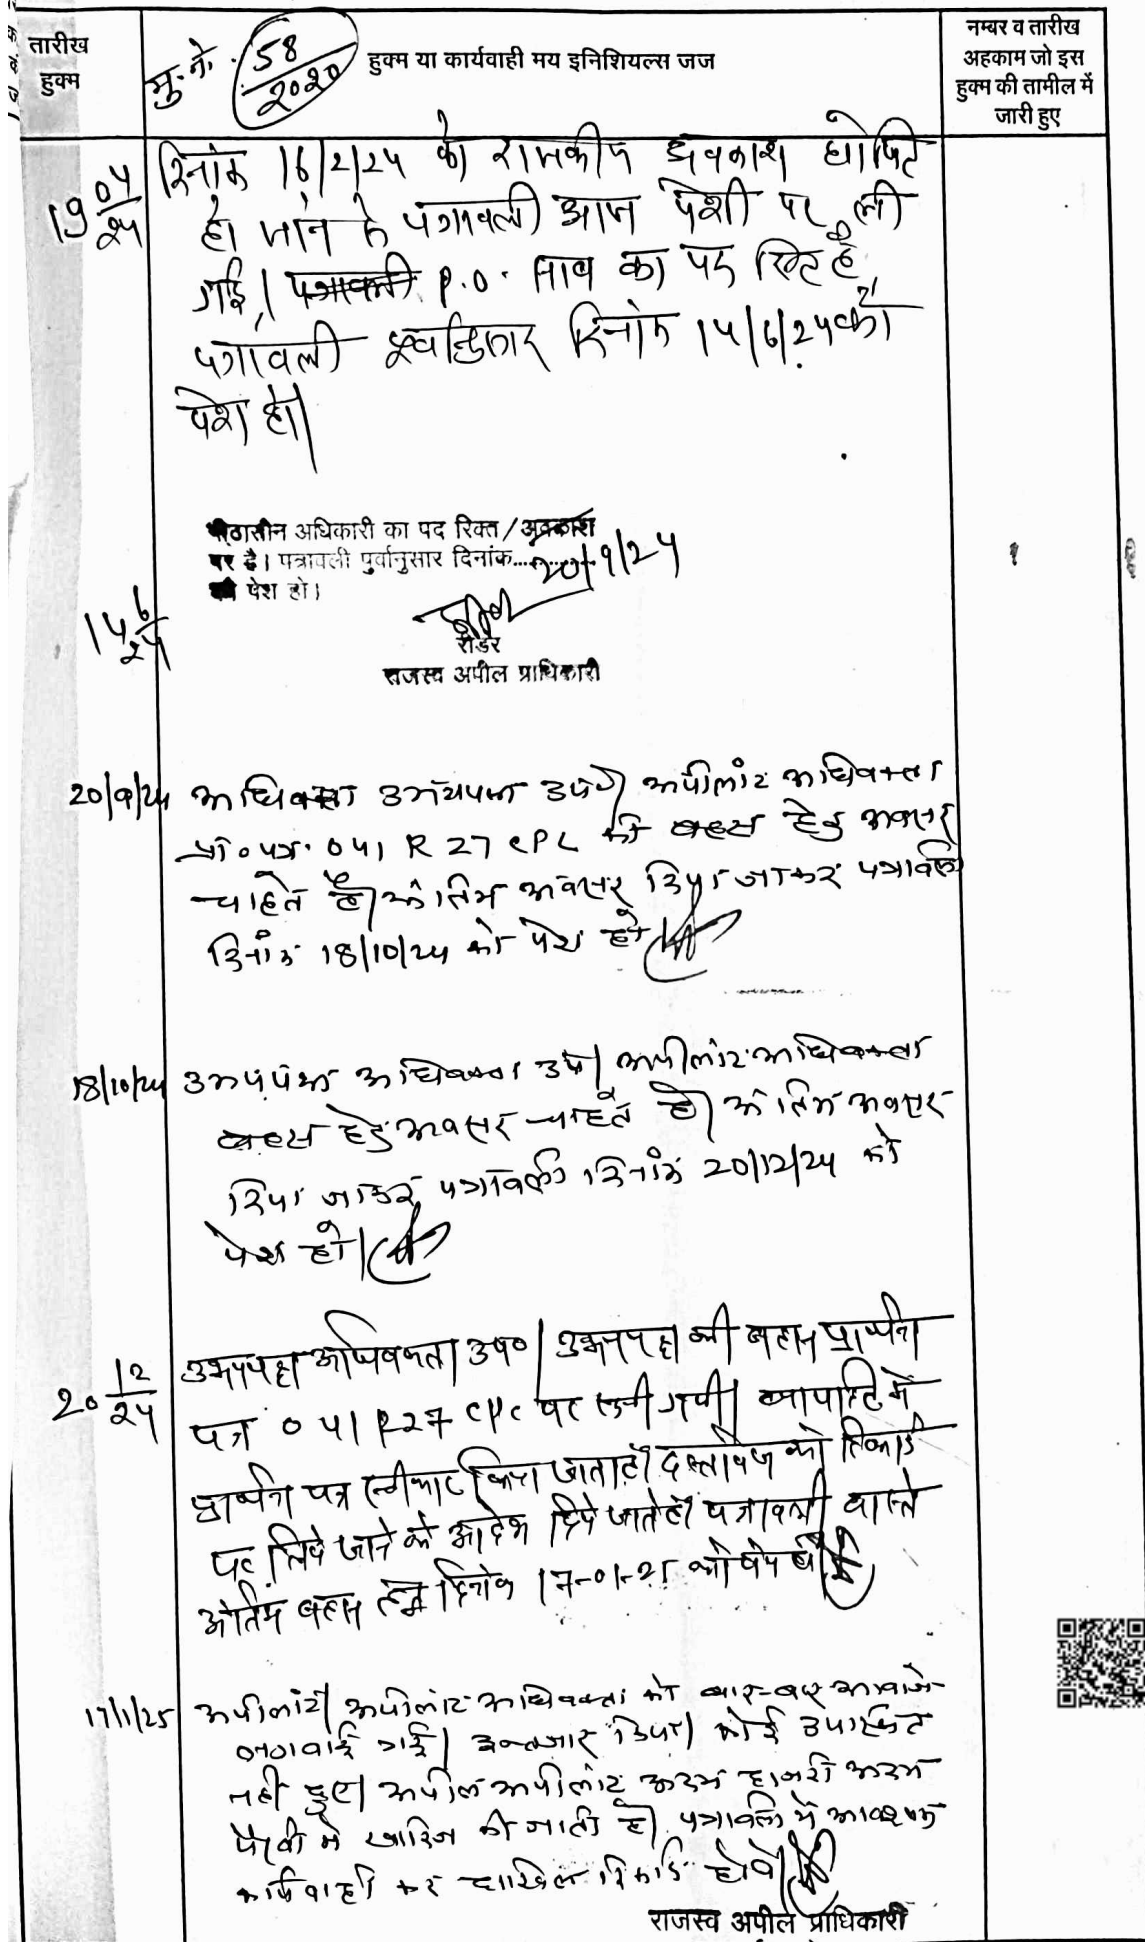 तारीख
हुक्म
मु. नं. 58/2020
हुक्म या कार्यवाही मय इनिशियल्स जज
नम्बर व तारीख
अहकाम जो इस
हुक्म की तामील में
जारी हुए
19 04/24
दिनांक 16/2/24 को राजकीय अवकाश घोषित
हो जाने से पत्रावली आज पेशी पर ली
गई। पत्रावली P.O. साब का पद रिक्त है,
पत्रावली पूर्वानुसार दिनांक 14/6/24 को
पेश हो।
पीठासीन अधिकारी का पद रिक्त/अवकाश
पर है। पत्रावली पुर्वानुसार दिनांक.... 20/9/24
को पेश हो।
14 6/24
रीडर
राजस्व अपील प्राधिकारी
20/9/24 अधिवक्ता उभयपक्ष उप0। अपीलांट अधिवक्ता
प्रा0 पत्र 041 R 27 CPC की बहस हेतु अवसर
चाहते है। अंतिम अवसर दिया जाकर पत्रावली
दिनांक 18/10/24 को पेश हो।
18/10/24 उभयपक्ष अधिवक्ता उप0। अपीलांट अधिवक्ता
बहस हेतु अवसर चाहते है। अंतिम अवसर
दिया जाकर पत्रावली दिनांक 20/12/24 को
पेश हो।
20 12/24
उभयपक्ष अधिवक्ता उप0। उभयपक्ष की बहस प्रार्थना
पत्र 0 41 R 27 CPC पर सुनी गयी। में
प्रार्थना पत्र स्वीकार किया जाता है। दस्तावेज को रिकार्ड
पर लिये जाने के आदेश दिये जाते है। पत्रावली वास्ते
अंतिम बहस हेतु दिनांक 17-01-25 को पेश हो।
17/1/25 अपीलांट। अपीलांट अधिवक्ता को बार-बार आवाजे
लगवाई गई। इन्तजार किया। कोई उपस्थित
नही हुए। अपील अपीलांट अदम हाजरी अदम
पैरवी मे खारिज की जाती है। पत्रावली मे आवश्यक
कार्यवाही कर दाखिल रिकार्ड होवे।
राजस्व अपील प्राधिकारी